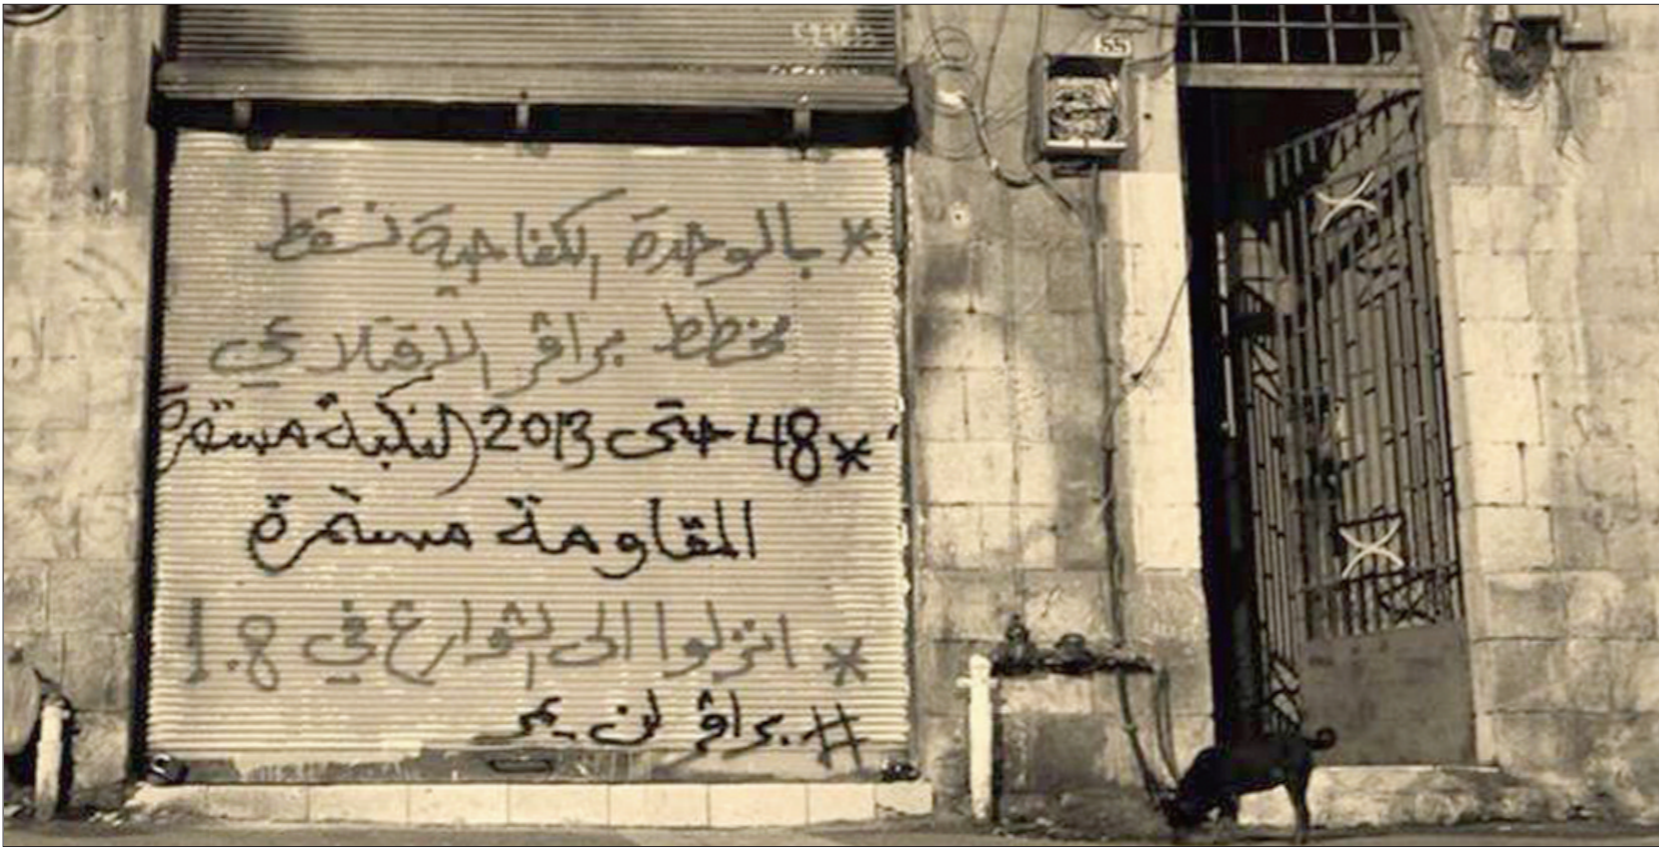 55
* بالوحدة الكفاحية نسقط
مخطط براڤر الاقتلاعي
* 48 حتى 2013 النكبة مستمرة
المقاومة مستمرة
* انزلوا الى الشوارع في 1.8
# براڤر لن يمر